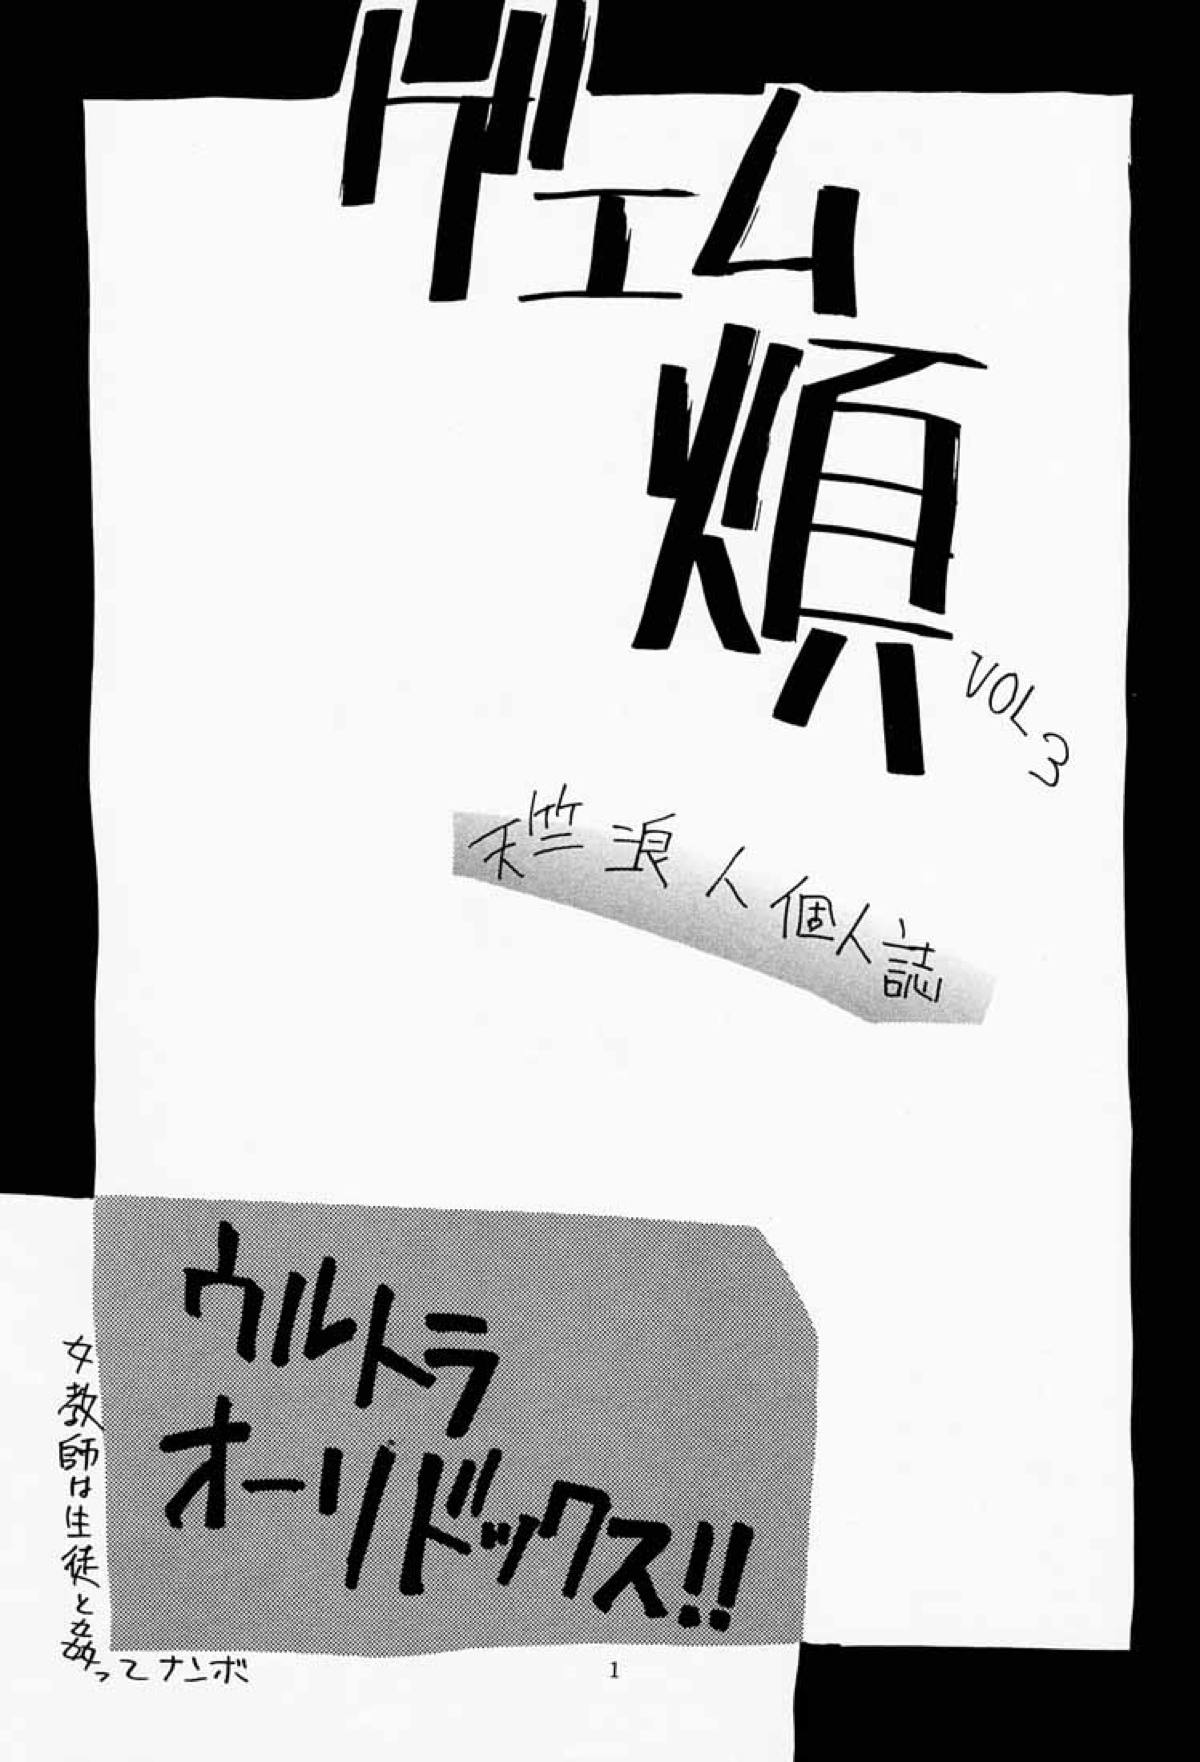 ゲエム
煩
VOL 3
天竺浪人個人誌
ウルトラ
オーソドックス!!
女教師は生徒と姦ってナンボ
1